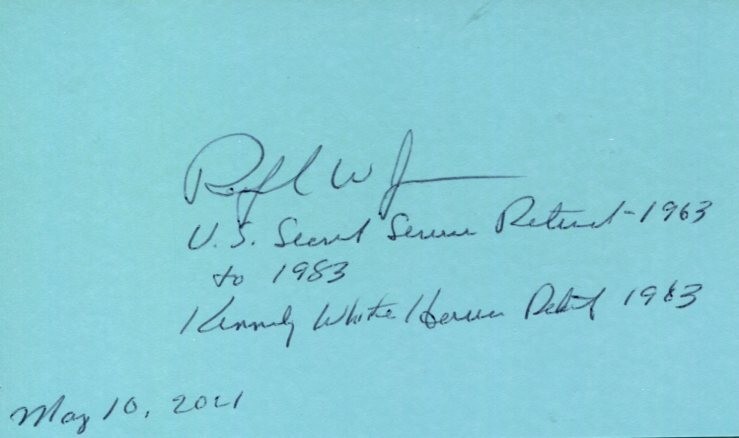 W
U.S. Secret Service Retired - 1963
to 1983
Kennedy White House Detail 1963
May 10, 2021